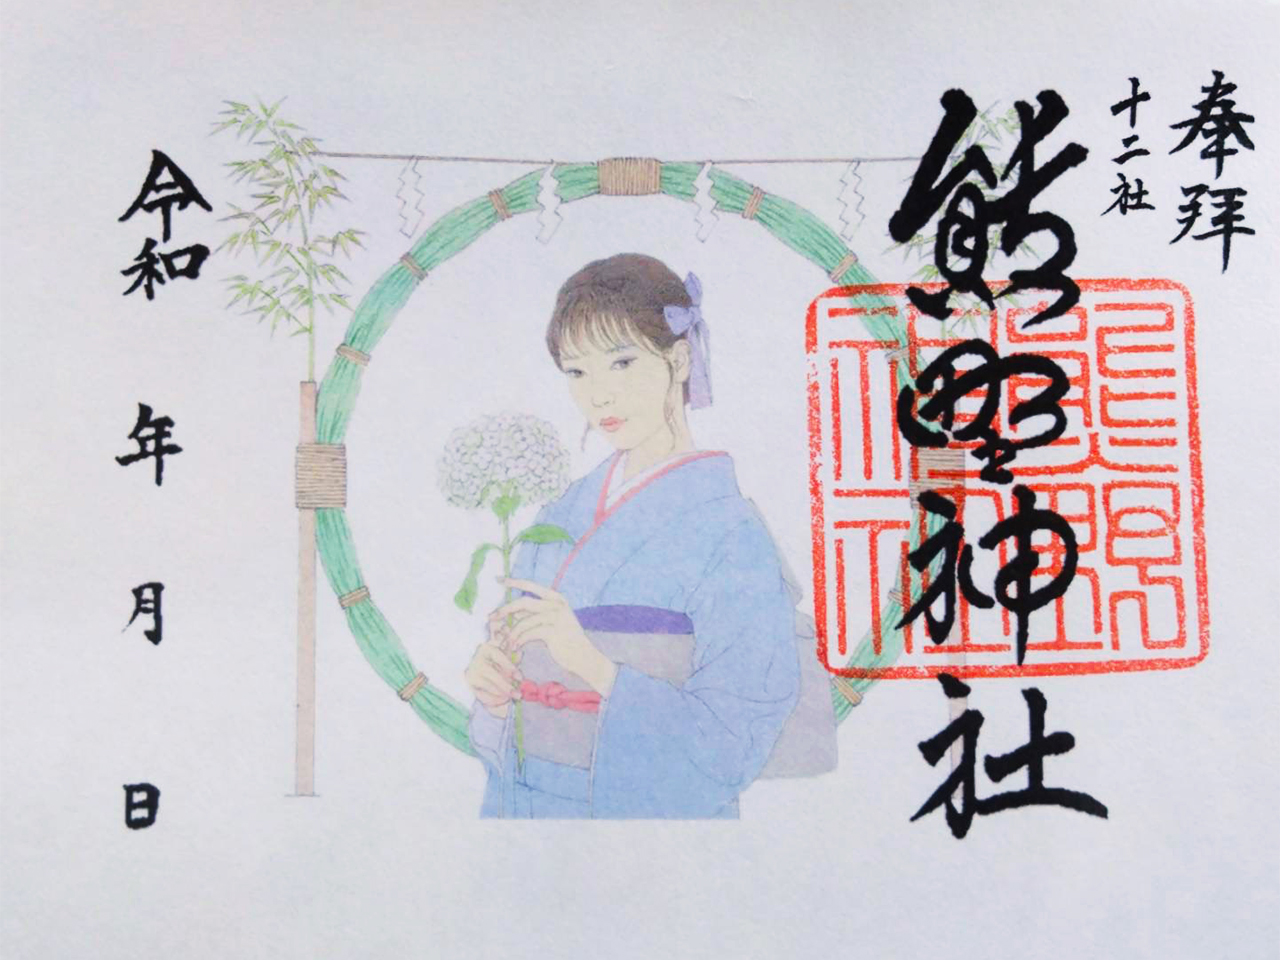 奉拝
十二社
熊野神社
熊野神社
令和 年 月 日